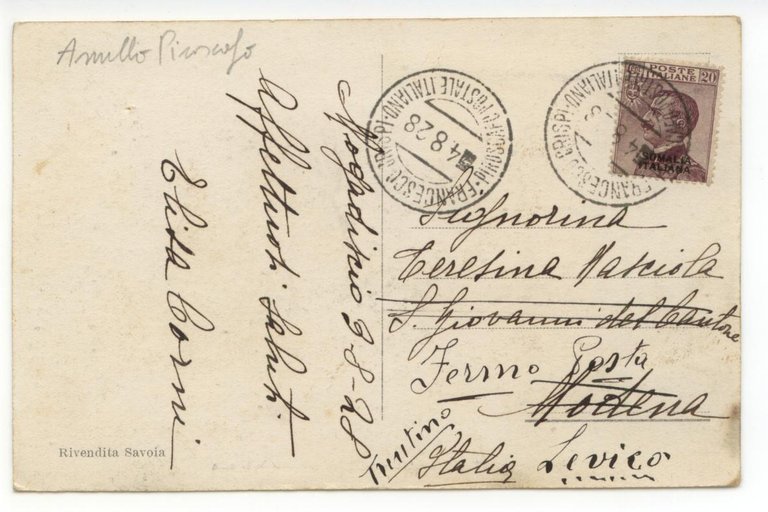 Annullo Piroscafo
Mogadiscio 3-8-28
Affettuosi Saluti.
Elisa Corni
PIROSCAFO POSTALE ITALIANO
FRANCESCO CRISPI
4.8.28
POSTE
ITALIANE 20
SOMALIA
ITALIANA
Signorina
Teresina Masciola
S. Giovanni del Cantone
Fermo Posta
Modena
Trentino
Italia Levico
Rivendita Savoia